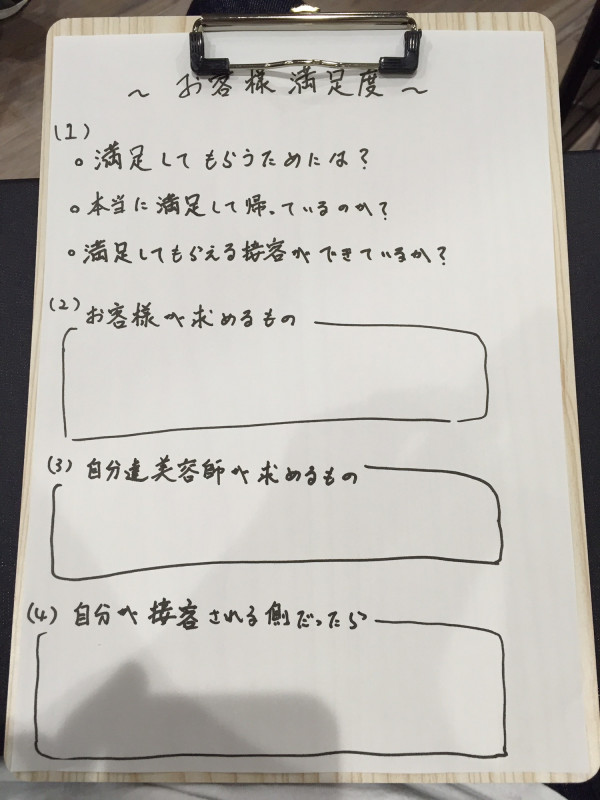 ～ お客様満足度 ～
(1)
。満足してもらうためには？
。本当に満足して帰っているのか？
。満足してもらえる接客ができているか？
(2) お客様が求めるもの
(3) 自分達美容師が求めるもの
(4) 自分が接客される側だったら